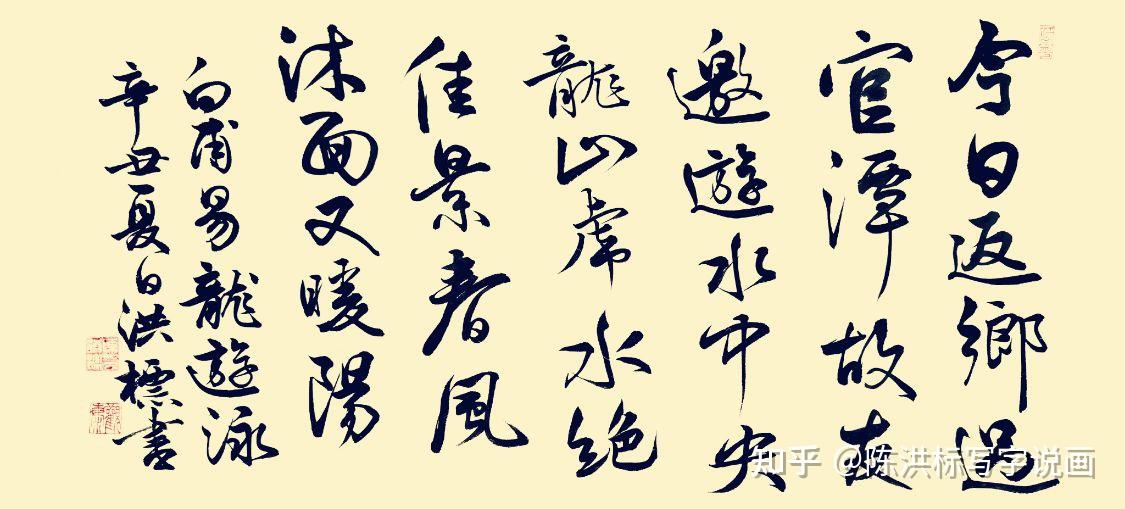 今日返鄉過
官潭故友
邀遊水中央
龍山虎水絕
佳景春風
沐面又暖陽
白甫易龍遊泳
辛丑夏日洪標書
知乎 @陈洪标写字说画